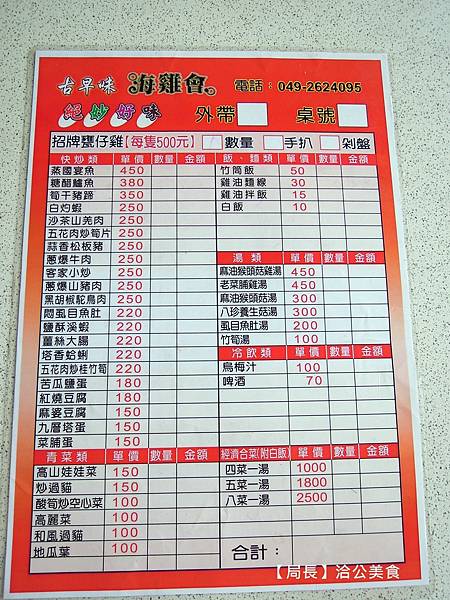 古早味 海雞會 電話：049-2624095
絕妙好味 外帶 桌號
招牌甕仔雞【每隻500元】 數量 手扒 剁盤
快炒類 單價 數量 金額
蒸國宴魚 450
糖醋鱸魚 380
筍干豬蹄 350
白灼蝦 250
沙茶山羌肉 250
五花肉炒筍片 250
蒜香松板豬 250
蔥爆牛肉 250
客家小炒 250
蔥爆山豬肉 250
黑胡椒駝鳥肉 250
悶虱目魚肚 220
鹽酥溪蝦 220
薑絲大腸 220
塔香蛤蜊 220
五花肉炒桂竹筍 220
苦瓜鹽蛋 180
紅燒豆腐 180
麻婆豆腐 150
九層塔蛋 150
菜脯蛋 150
青菜類 單價 數量 金額
高山娃娃菜 150
炒過貓 150
酸筍炒空心菜 100
高麗菜 100
和風過貓 100
地瓜葉 100
飯、麵類 單價 數量 金額
竹筒飯 50
雞油麵線 30
雞油拌飯 15
白飯 10
湯類 單價 數量 金額
麻油猴頭菇雞湯 450
老菜脯雞湯 450
麻油猴頭菇湯 300
八珍養生菇湯 300
虱目魚肚湯 200
竹筍湯 100
冷飲類 單價 數量 金額
烏梅汁 100
啤酒 70
經濟合菜(附白飯) 單價 數量 金額
四菜一湯 1000
五菜一湯 1800
八菜一湯 2500
合計：
【局長】洽公美食